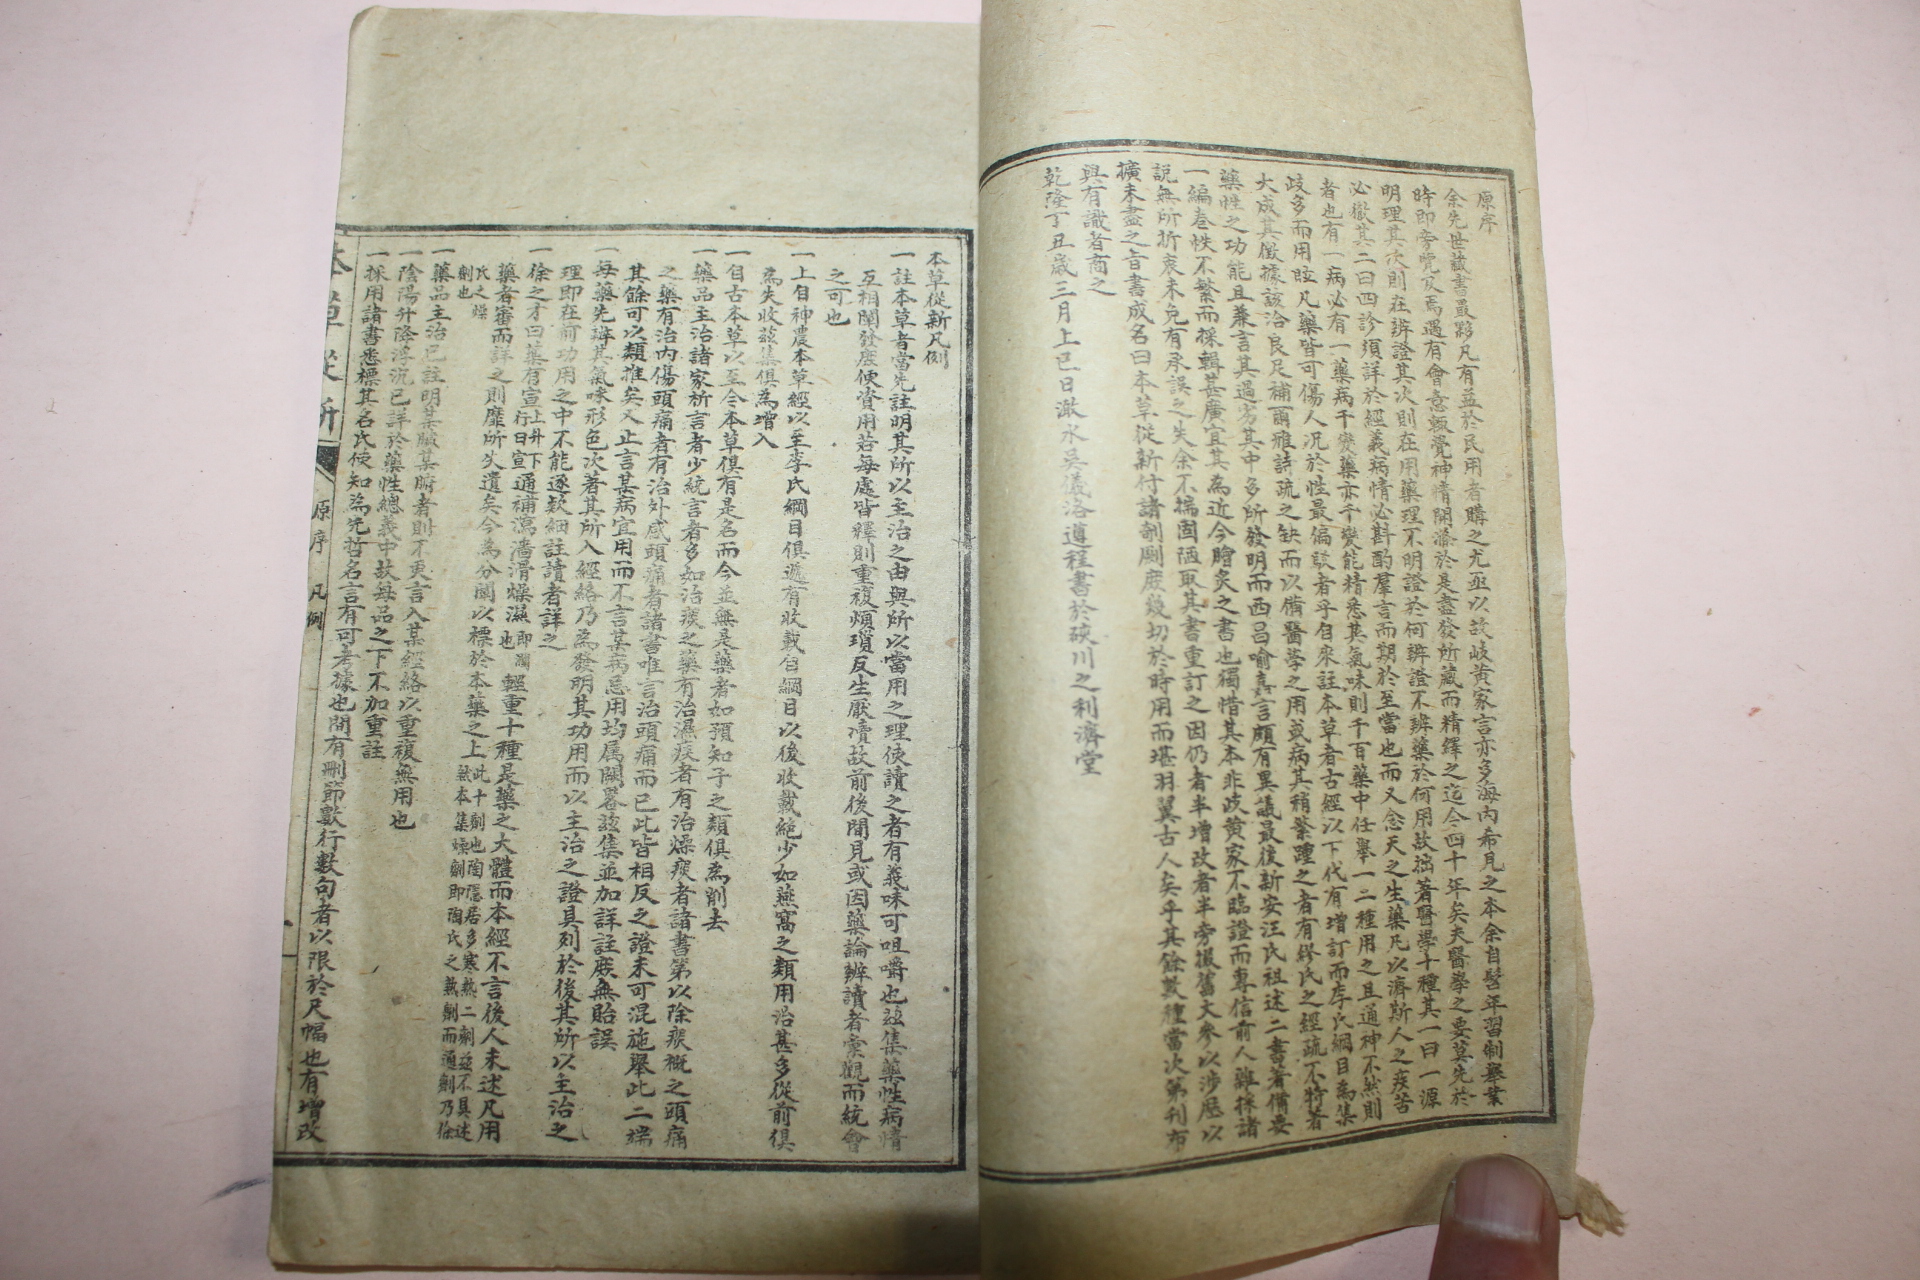 原序
余先世藏書最夥凡有益於民用者購之尤亟以故岐黃家言亦多海內希見之本余自髫年習制舉業
時即旁覽及焉遇有會意輒覺神情開滌於是盡發所藏而精繹之迄今四十年矣夫醫學之要莫先於
明理其次則在辨證其次則在用藥理不明證於何辨證不辨藥於何用故拙著醫學十種其一曰一源
必徹其二曰四診須詳於經義病情必斟酌羣言而期於至當也而又念天之生藥凡以濟斯人之疾苦
者也有一病必有一藥病千變藥亦千變能精悉其氣味則千百藥中任舉一二種用之且通神不然則
歧多而用眩凡藥皆可傷人况於性最偏駁者乎自來註本草者古經以下代有增訂而李氏綱目為集
大成其徵據該洽良足補爾雅詩疏之缺而以備醫學之用或病其稍繁踵之者有繆氏之經疏不特著
藥性之功能且兼言其過劣其中多所發明而西昌喻嘉言頗有異議最後新安汪氏祖述二書著備要
一編卷帙不繁而採輯甚廣宜其為近今膾炙之書也獨惜其本非歧黃家不臨證而專信前人雜採諸
說無所折衷未免有承誤之失余不揣固陋取其書重訂之因仍者半增改者半旁掇舊文參以涉歷以
擴未盡之旨書成名曰本草從新付諸剞劂庶幾切於時用而堪羽翼古人矣乎其餘數種當次第刊布
與有識者商之
乾隆丁丑歲三月上巳日澉水吳儀洛遵程書於硤川之利濟堂
本草從新凡例
一註本草者當先註明其所以主治之由與所以當用之理使讀之者有義味可咀嚼也茲集藥性病情
互相闡發庶便資用若每處皆釋則重複煩瑣反生厭瀆故前後間見或因藥論辨讀者彙觀而統會
之可也
一上自神農本草經以至李氏綱目俱遞有收載自綱目以後收載絶少如燕窩之類用治甚多從前俱
為失收茲集俱為增入
一自古本草以至今本草俱有是名而今並無是藥者如預知子之類俱為削去
一藥品主治諸家析言者少統言者多如治痰之藥有治濕痰者有治燥痰者諸書第以除痰概之頭痛
之藥有治內傷頭痛者有治外感頭痛者諸書唯言治頭痛而已此皆相反之證未可混施舉此二端
其餘可以類推矣又止言某病宜用而不言某病忌用均属闕畧茲集並加詳註庶無貽誤
一每藥先辨其氣味形色次著其所入經絡乃為發明其功用而以主治之證具列於後其所以主治之
理即在前功用之中不能逐欵細註讀者詳之
一徐之才曰藥有宣上升下行曰宣通補瀉濇滑燥濕即潤也輕重十種是藥之大體而本經不言後人未述凡用
藥者審而詳之則靡所失遺矣今為分闡以標於本藥之上此十劑也陶隱居多寒熱二劑茲不具述然本集燥劑即陶氏之熱劑而通劑乃徐
氏之燥劑也
一藥品主治已註明某臟某腑者則不更言入某經絡以重複無用也
一陰陽升降浮沉已詳於藥性總義中故每品之下不加重註
一採用諸書悉標其名氏使知為先哲名言有可考據也間有刪節數行數句者以限於尺幅也有增改
本草從新 原序 凡例 一